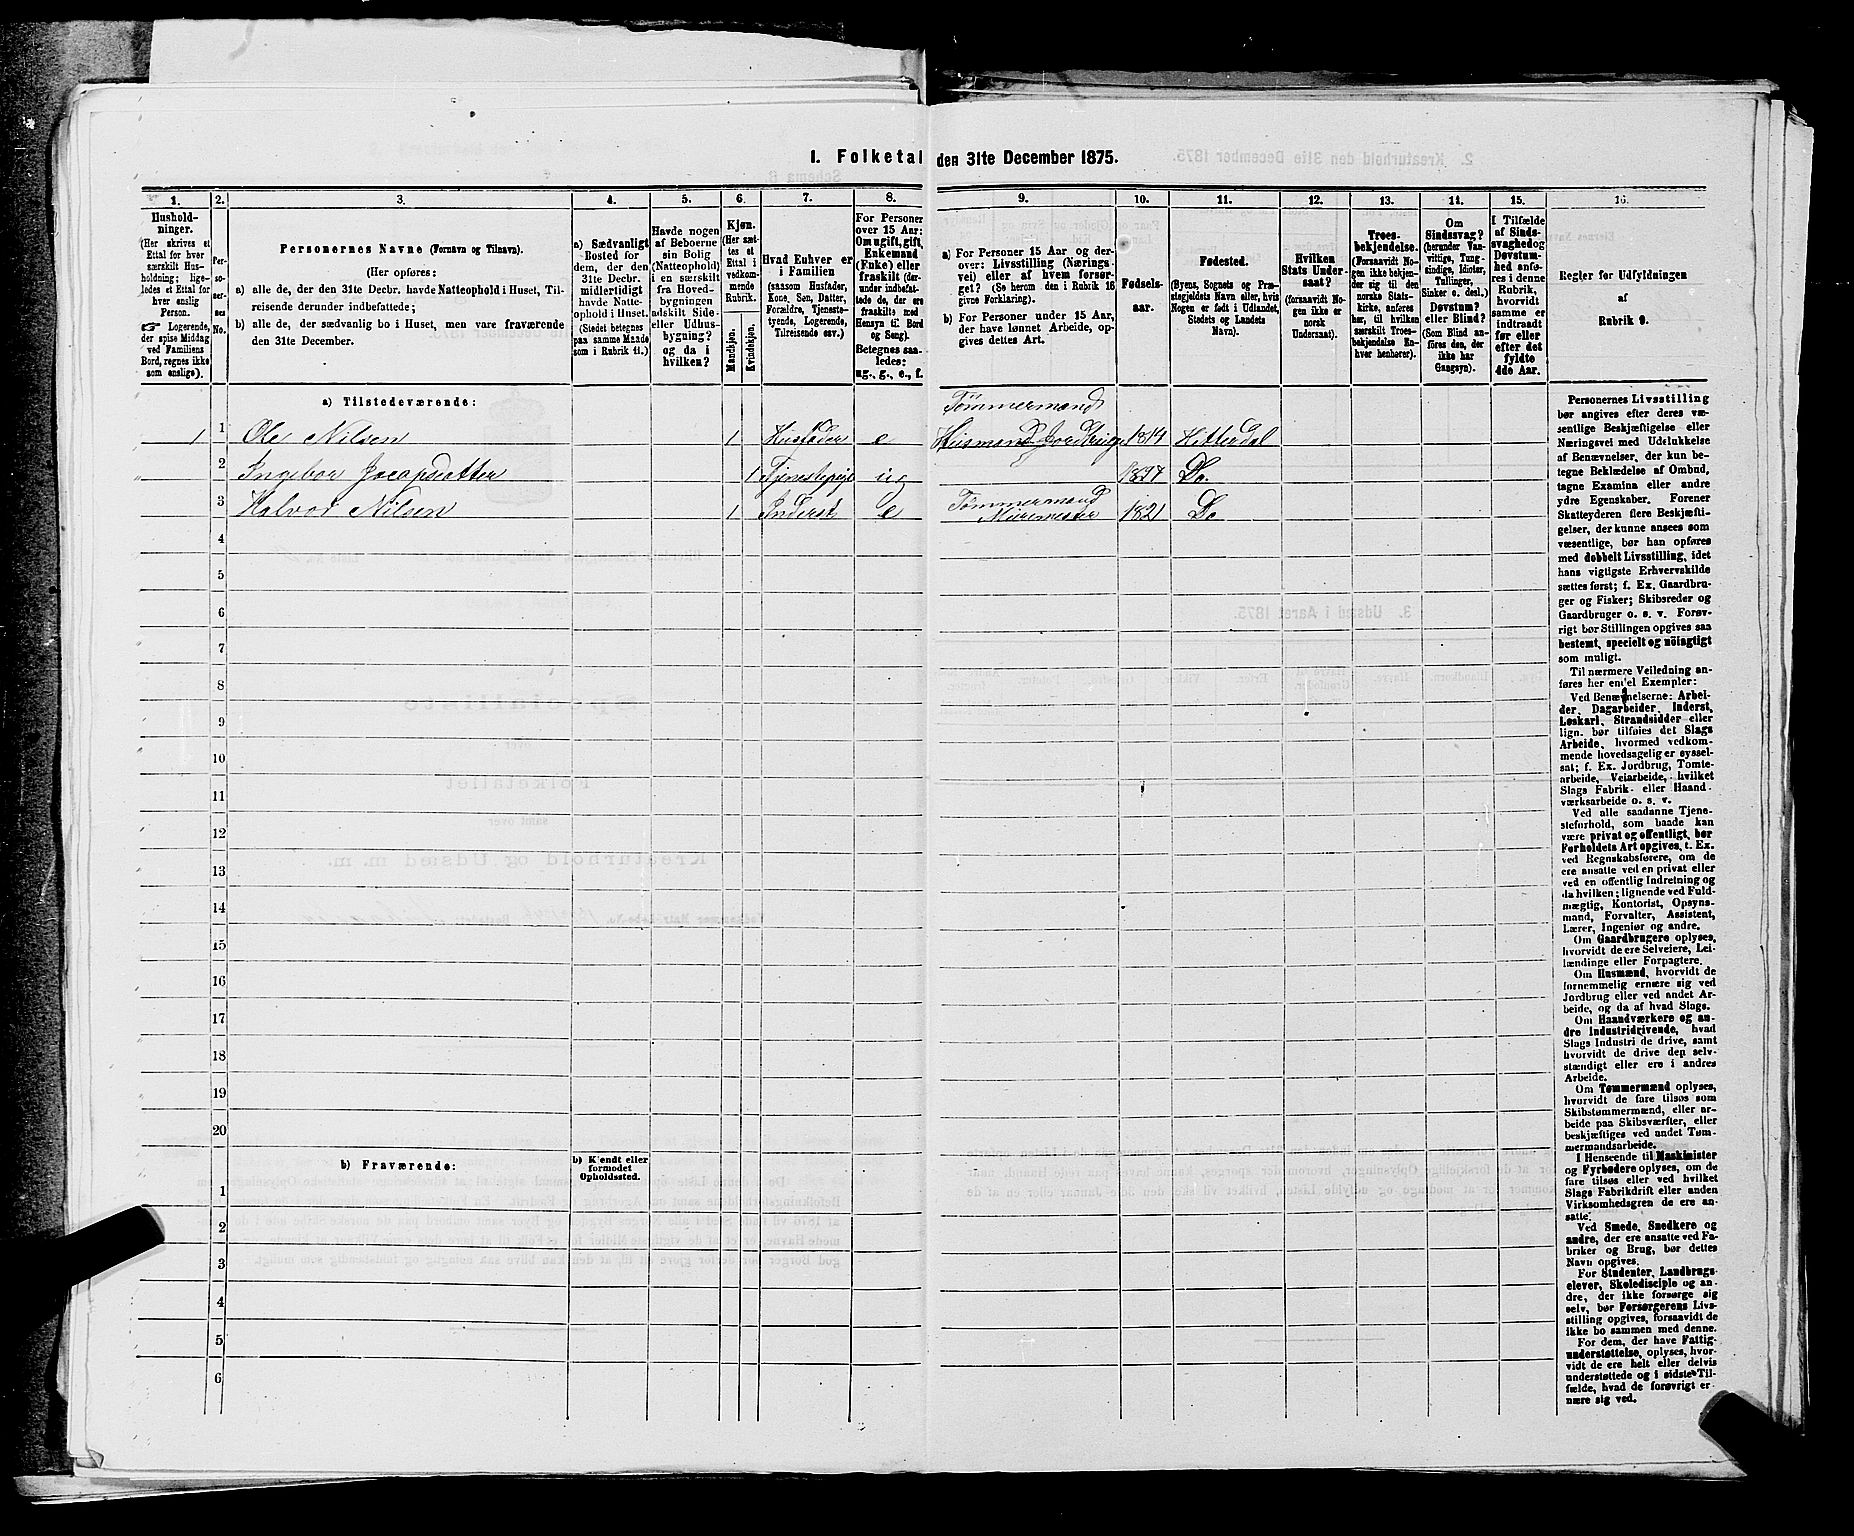 I. Folketal den 31te December 1875.
1.
Hushold-
ninger.
(Her skrives et
Ettal for hver
særskilt Hus-
holdning; lige-
ledes et Ettal for
hver enslig
Person.
☞ Logerende,
der spise Middag
ved Familiens
Bord, regnes ikke
som enslige).
2.
Per-
so-
ner-
nes
No.
3.
Personernes Navne (Fornavn og Tilnavn).
(Her opføres:
a) alle de, der den 31te Decbr. havde Natteophold i Huset, Til-
reisende derunder indbefattede;
b) alle de, der sædvanlig bo i Huset, men vare fraværende
den 31te December.
4.
a) Sædvanligt
Bosted for
dem, der den
31te Decbr.
midlertidigt
havde Natte-
ophold i Huset.
(Stedet betegnes
paa samme Maade
som i Rubrik 11.)
5.
Havde nogen
af Beboerne
sin Bolig
(Natteophold)
i en særskilt
fra Hoved-
bygningen
adskilt Side-
eller Udhus-
bygning?
og da i
hvilken?
6.
Kjøn.
(Her sæt-
tes et
Ettal i
vedkom-
mende
Rubrik.
Mandkjøn.
Kvindekjøn.
7.
Hvad Enhver er
i Familien
(saasom Husfader,
Kone, Søn, Datter,
Forældre, Tjeneste-
tyende, Logerende,
Tilreisende osv.)
8.
For Personer
over 15 Aar:
Om ugift, gift,
Enkemand
(Enke) eller
fraskilt (der-
under indbefat-
tede de, der ere
fraskilte med
Hensyn til Bord
og Seng).
Betegnes saa-
ledes:
ug., g., e., f.
9.
a) For Personer 15 Aar og der-
over: Livsstilling (Nærings-
vei) eller af hvem forsør-
get? (Se herom den i Rubrik 16
givne Forklaring).
b) For Personer under 15 Aar,
der have lønnet Arbeide, op-
gives dettes Art.
10.
Fødsels-
aar.
11.
Fødested.
(Byens, Sognets og Præ-
stegjeldets Navn eller, hvis
Nogen er født i Udlandet,
Stedets og Landets
Navn).
12.
Hvilken
Stats Under-
saat?
(forsaavidt No-
gen ikke er
norsk
Undersaat).
13.
Troes-
bekjendelse.
(Forsaavidt No-
gen ikke bekjen-
der sig til den
norske Stats-
kirke, anføres
her, til hvilken
særskilt Troes-
bekjendelse En-
hver henhører).
14.
Om
Sindssvag?
(herunder Van-
vittige, Tung-
sindige, Idioter,
Tullinger,
Sinker o. desl.)
Døvstum?
eller Blind?
(Som Blind an-
føres den, der
ikke har
Gangsyn).
15.
I Tilfælde
af Sinds-
svaghed og
Døvstum-
hed anfø-
res i denne
Rubrik,
hvorvidt
samme er
indtraadt
før eller
efter det
fyldte
4de Aar.
16.
Regler for Udfyldningen
af
Rubrik 9.
a) Tilstedeværende:
Tømmermand
1 1 Ole Nilsen 1 Husfader e Husmand Jordbrug 1814 Hitterdal
2 Ingebor Jacopsdatter 1 Tjenestepige ug Do.
Tømmermand
3 Halvor Nilsen 1 Inderst e Muremester 1821 Do
4
5
6
7
8
9
10
11
12
13
14
15
16
17
18
19
20
b) Fraværende:
b) Kjendt eller
formodet
Opholdssted.
1
2
3
4
5
6
Personernes Livsstilling
bør angives efter deres væ-
sentlige Beskjæftigelse eller
Næringsvei med Udelukkelse
af Benævnelser, der kun be-
tegne Beklædelse af Ombud,
tagne Examina eller andre
ydre Egenskaber. Forener
Skatteyderen flere Beskjæfti-
gelser, der kunne ansees som
væsentlige, bør han opføres
med dobbelt Livsstilling, idet
hans vigtigste Erhvervskilde
sættes først; f. Ex. Gaardbru-
ger og Fisker; Skibsreder og
Gaardbruger o. s. v. Forøv-
rigt bør Stillingen opgives saa
bestemt, specielt og nöiagtigt
som muligt.
Til nærmere Veiledning an-
føres her en del Exempler:
Ved Benævnelserne: Arbei-
der, Dagarbeider, Inderst,
Løskarl, Strandsidder eller
lign. bør tilføies det Slags
Arbeide, hvormed vedkom-
mende hovedsagelig er syssel-
sat; f. Ex. Jordbrug, Tomte-
arbeide, Veiarbeide, hvilket
Slags Fabrik- eller Haand-
værksarbeide o. s. v.
Ved alle saadanne Tjene-
steforhold, som baade kan
være privat og offentligt, bør
Forholdets Art opgives, t. Ex.
ved Regnskabsførere, om de
ere ansatte ved en privat eller
ved en offentlig Indretning og
da hvilken; lignende ved Fuld-
mægtig, Kontorist, Opsyns-
mand, Forvalter, Assistent,
Lærer, Ingeniør og andre.
Om Gaardbrugere oplyses,
hvorvidt de ere Selveiere, Lei-
lændinge eller Forpagtere.
Om Husmænd, hvorvidt de
fornemmelig ernære sig ved
Jordbrug eller ved andet Ar-
beide, og da af hvad Slags.
Om Haandværkere og an-
dre Industridrivende, hvad
Slags Industri de drive, samt
hvorvidt de drive den selv-
stændigt eller ere i andres
Arbeide.
Om Tømmermænd oplyses,
hvorvidt de fare tilsøs som
Skibstømmermænd, eller ar-
beide paa Skibsværfter, eller
beskjæftiges ved andet Tøm-
mermandsarbeide.
I Henseende til Maskinister
og Fyrbødere oplyses, om de
fare tilsøs eller ved hvilket
Slags Fabrikdrift eller anden
Virksomhedsgren de ere an-
satte.
Ved Smede, Snedkere og
andre, der ere ansatte ved Fa-
briker og Brug, bør dettes
Navn opgives.
For Studenter, Landbrugs-
elever, Skoledisciple og an-
dre, der ikke forsørge sig
selv, bør Forsørgerens Livs-
stilling opgives, forsaavidt de
ikke bo sammen med denne.
For dem, der have Fattig-
understøttelse, oplyses, hvor-
vidt de ere helt eller delvis
understøttede og i sidste Til-
fælde, hvad de forøvrigt er-
nære sig ved.